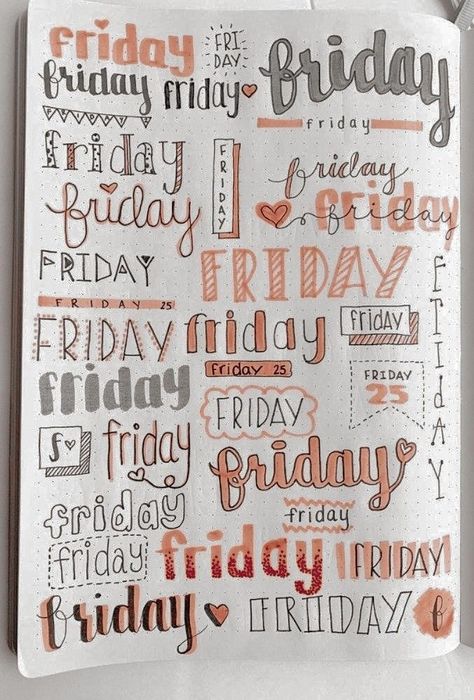 friday
FRI
DAY
friday
friday
friday
friday
friday
FRIDAY
friday
friday
friday
FRIDAY
FRIDAY
friday
FRIDAY 25
FRIDAY
friday
friday
friday 25
FRIDAY
25
friday
FRIDAY
f
friday
friday
friday
friday
friday
friday
FRIDAY
friday
FRIDAY
f